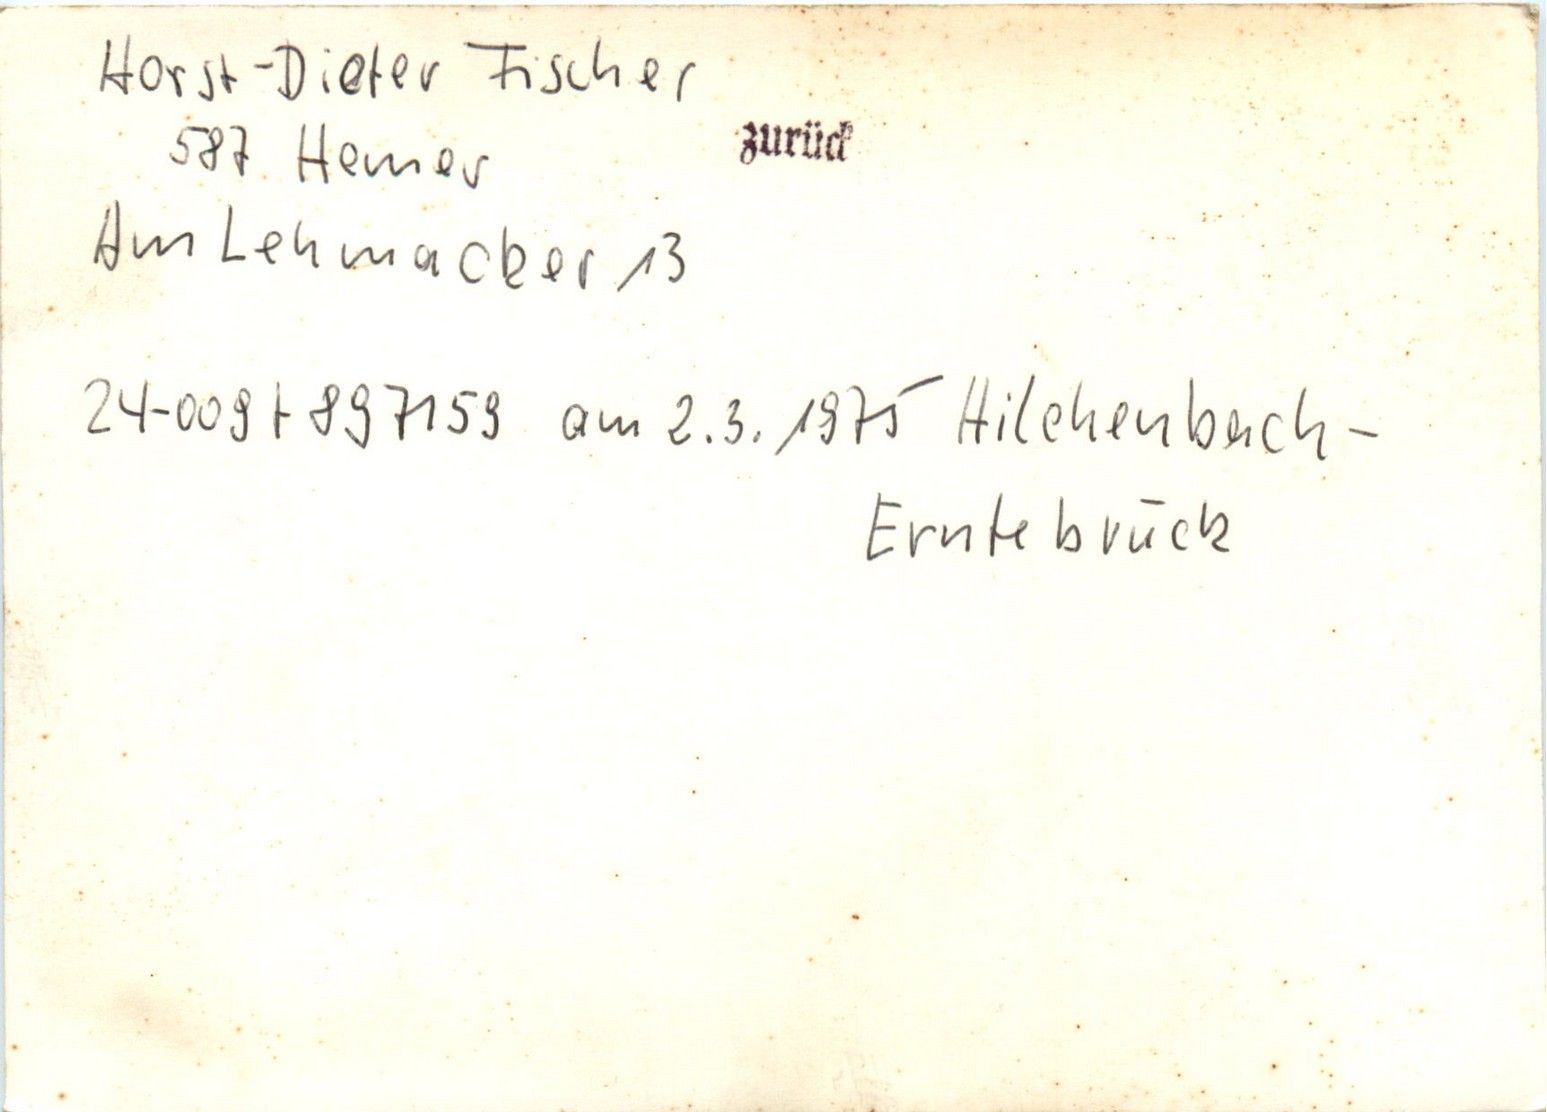 Horst-Dieter Fischer
587 Hemer
zurück
Am Lehmacker 13
24-009 + 897159 am 2.3.1975 Hilchenbach-
Erntebrück